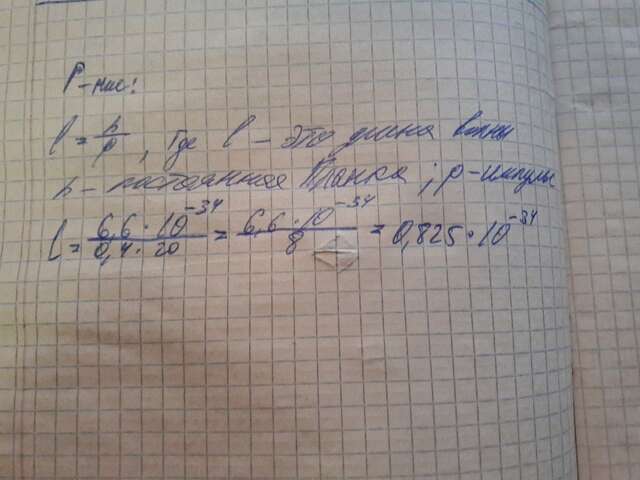 Р-ние:
l = h/p, где l - это длина волны
h - постоянная Планка; p - импульс
l = 6,6 · 10^-34 / 0,4 · 20 = 6,6 · 10^-34 / 8 = 0,825 · 10^-34